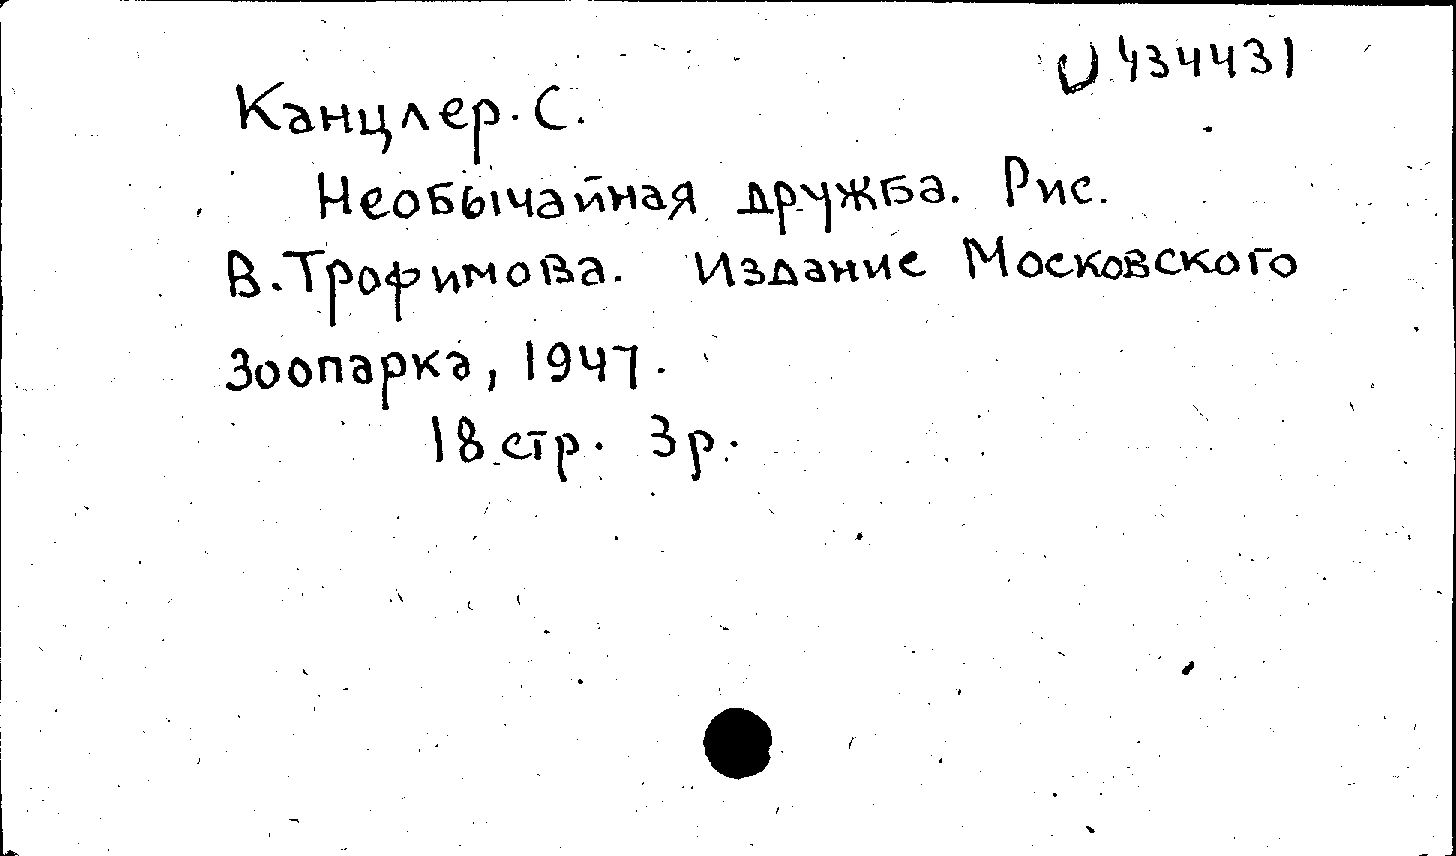 U 434431
Канцлер. С.
Необычайная дружба. Рис.
В. Трофимова. Издание Московского
Зоопарка, 1947.
18 стр. 3 р.